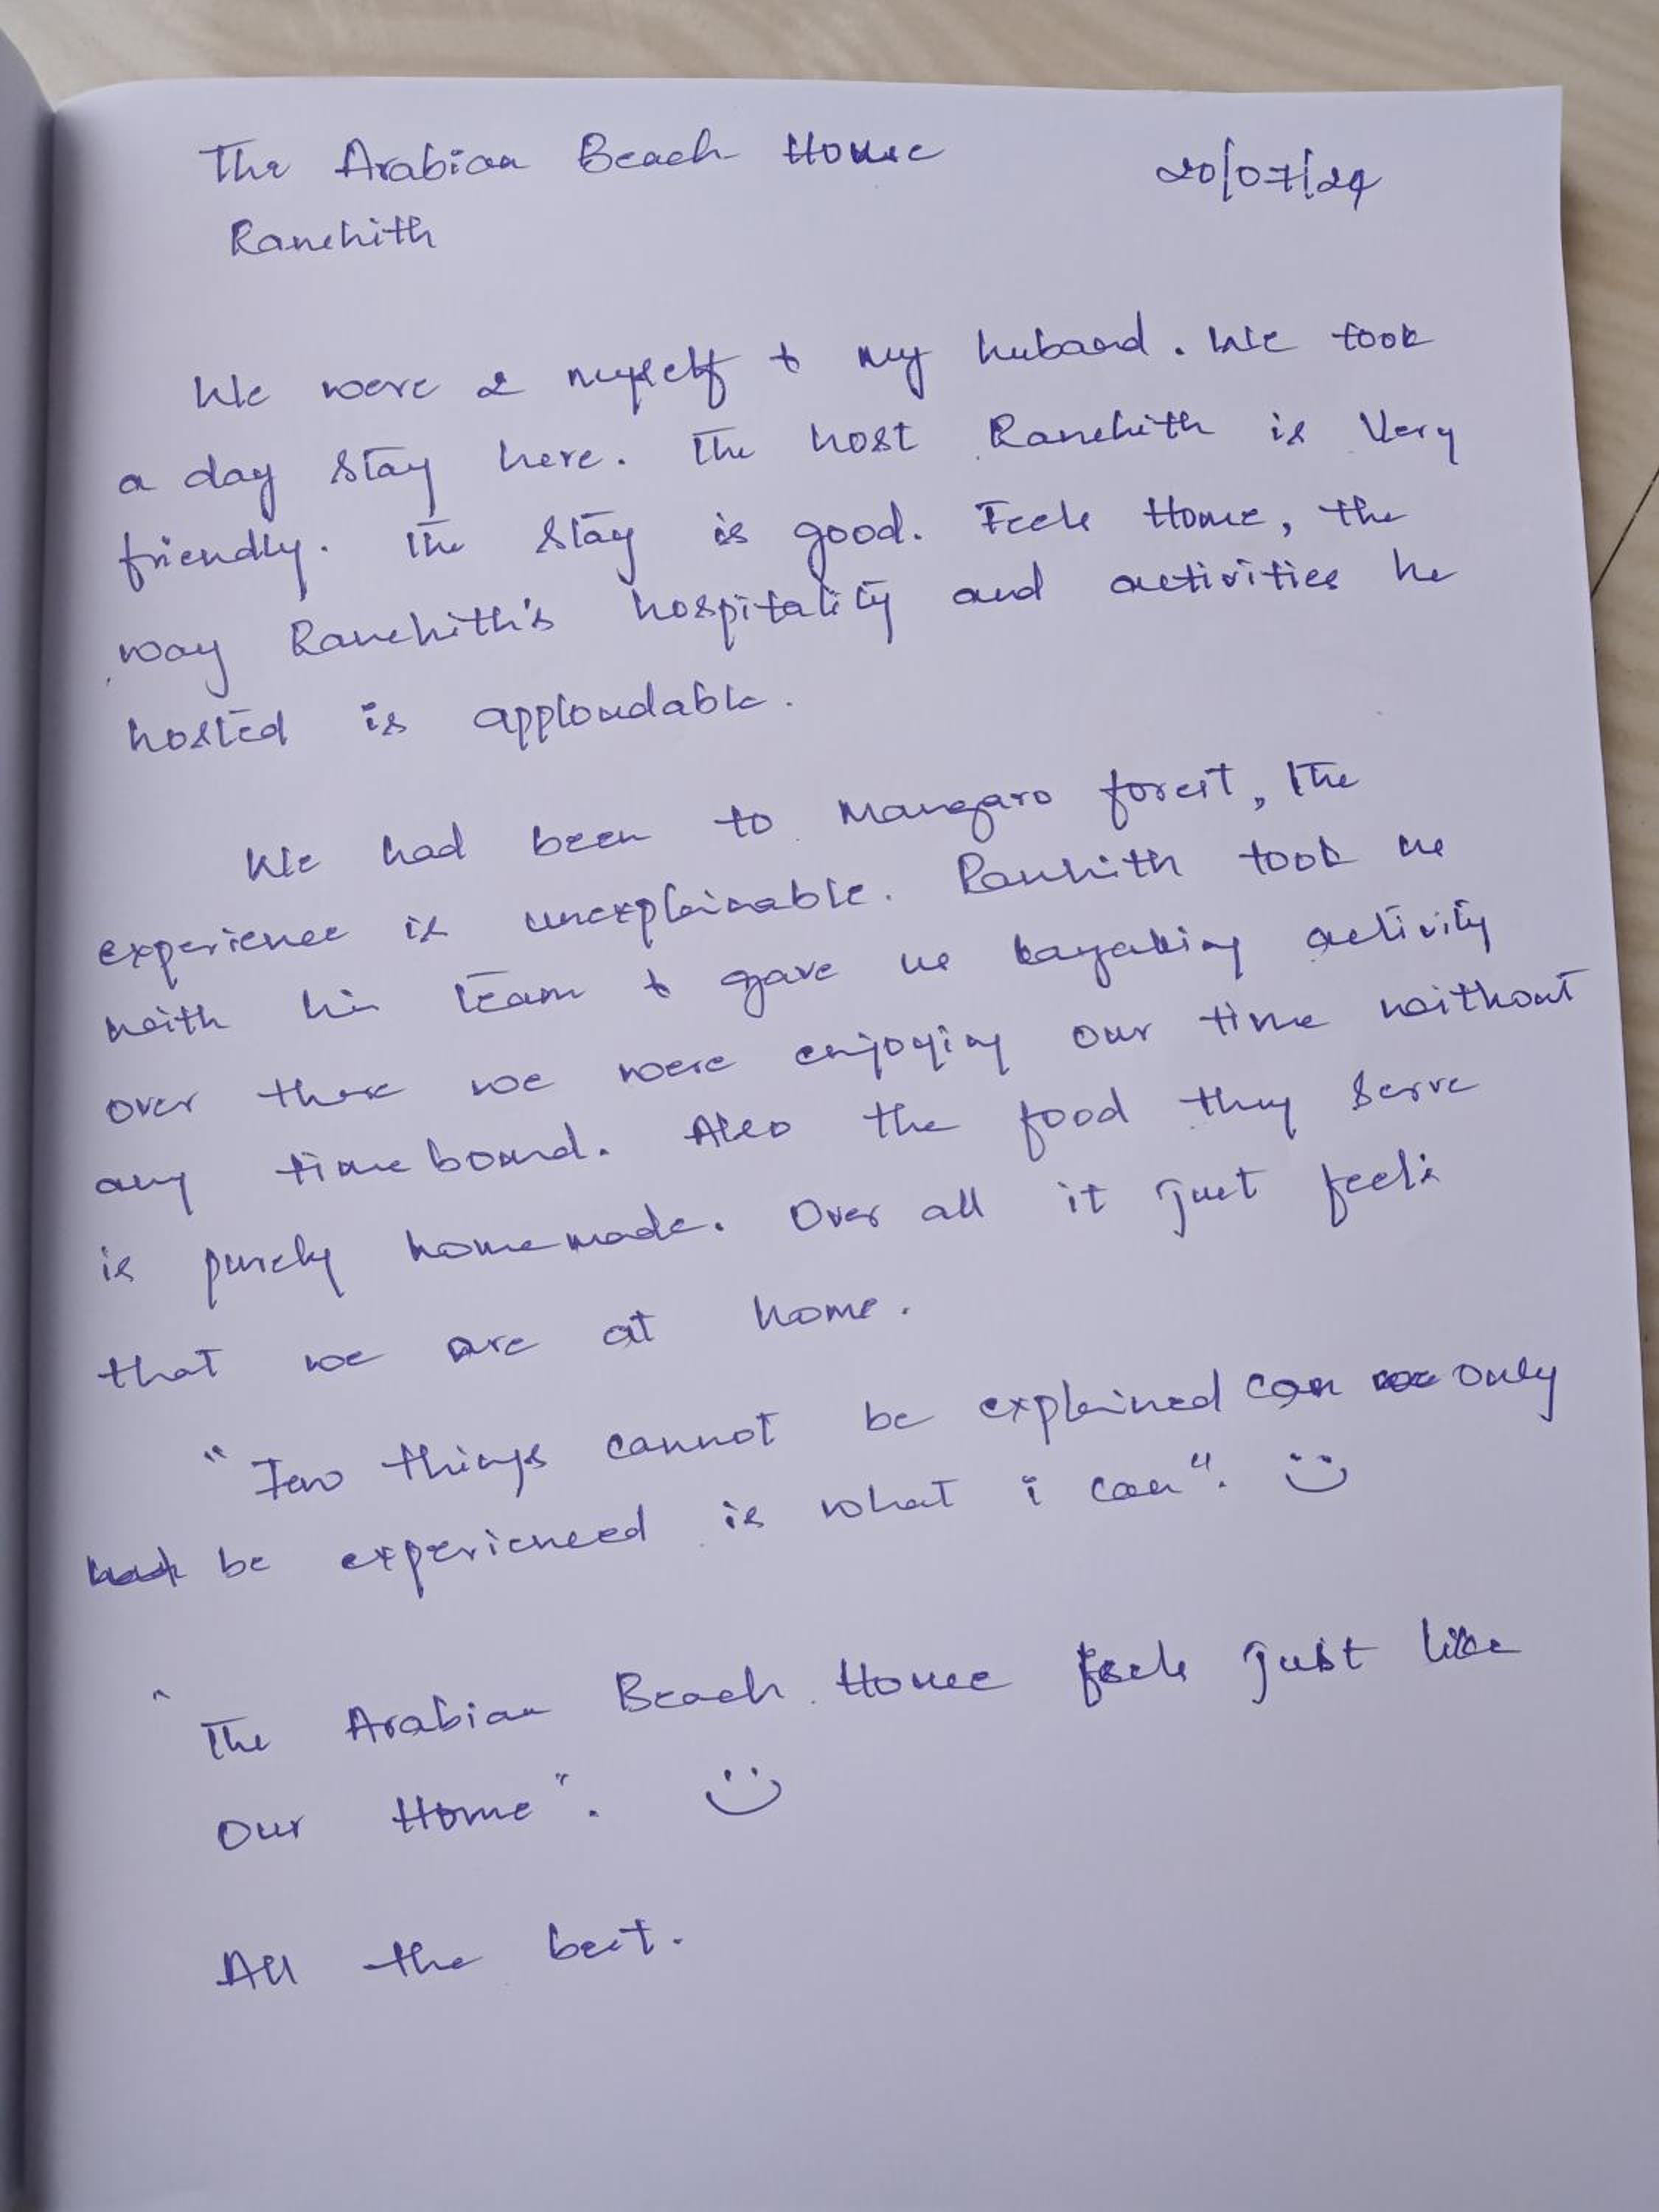 The Arabian Beach House
20/07/24
Ranchith
We were 2 myself & my huband. We took
a day stay here. The host Ranchith is Very
friendly. The stay is good. Feels Home, the
way Ranchith's hospitality and activities he
hosted is apploudable.
We had been to Mangaro forest, the
experience is unexplainable. Ranhith took us
with his team & gave us kayaking activity
over there we were enjoying our time without
any time bound. Also the food they serve
is purely homemade. Over all it just feels
that we are at home.
"Few things cannot be explained can only
be experienced is what i can". :)
"The Arabian Beach House feels just like
Our Home". :)
All the best.